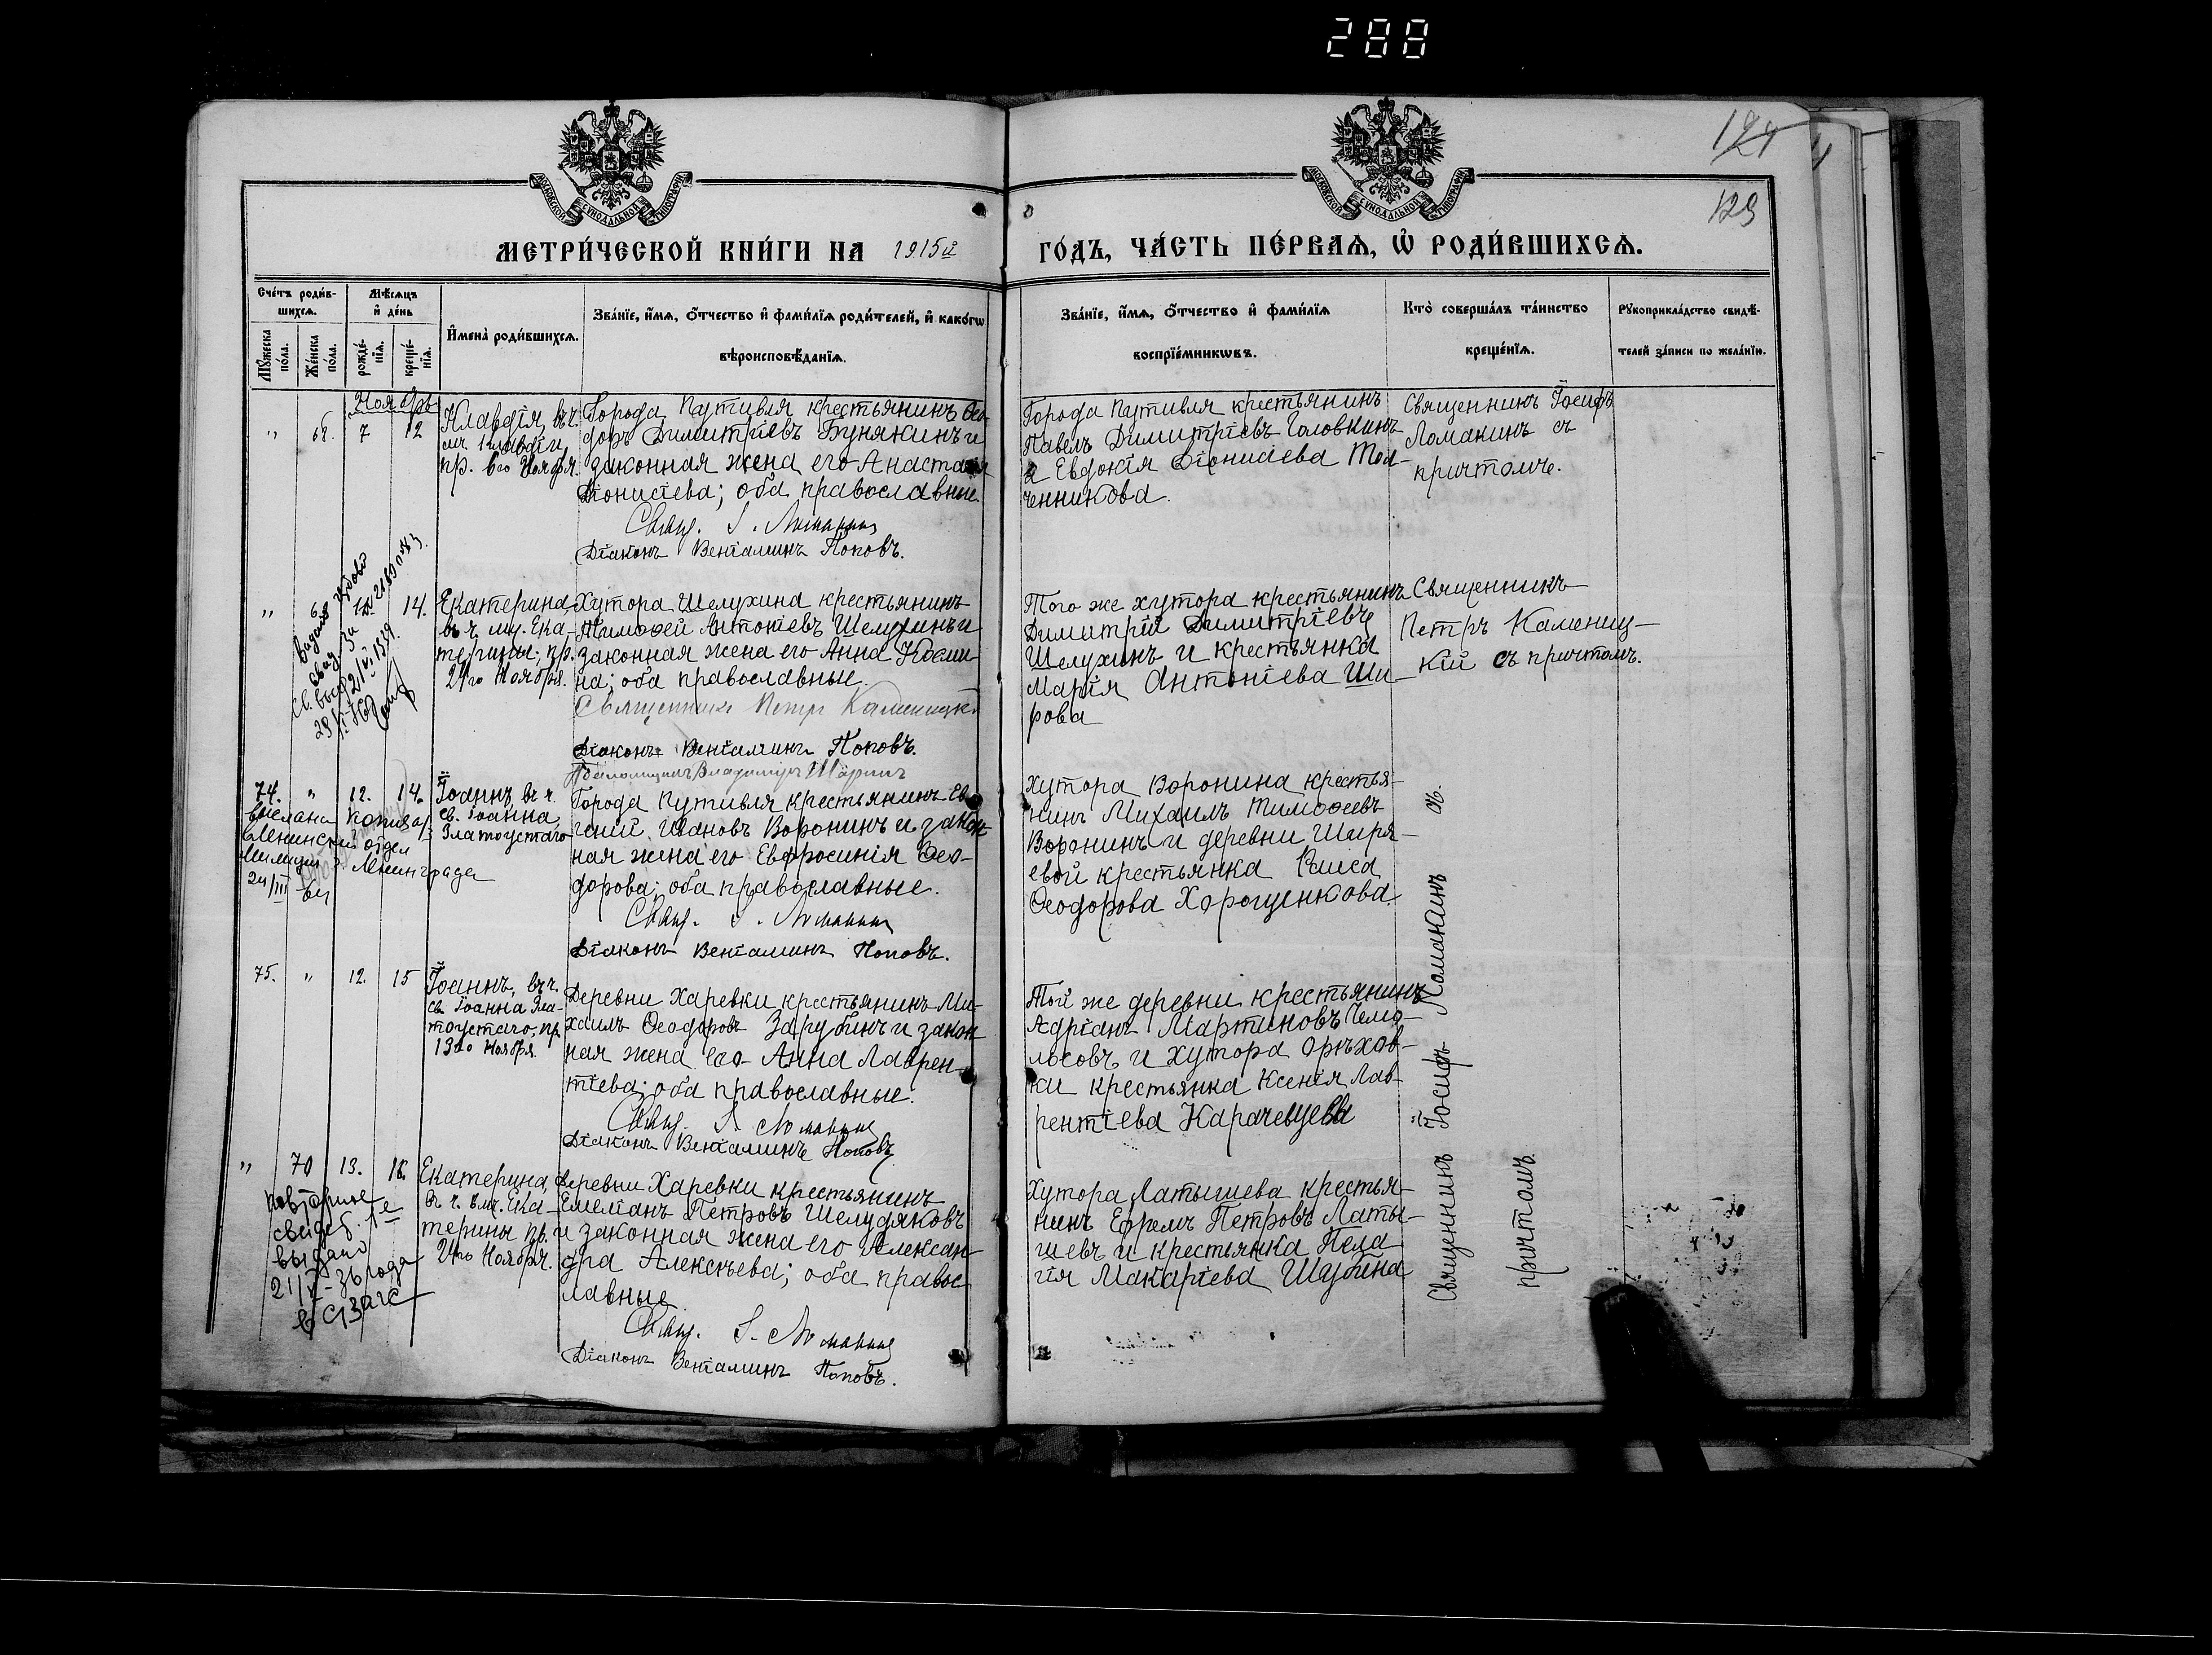 288
124
129
МОСКОВСКОЙ СѴНОДАЛЬНОЙ ТИПОГРАФІИ
МОСКОВСКОЙ СѴНОДАЛЬНОЙ ТИПОГРАФІИ
МЕТРИ́ЧЕСКОЙ КНИ́ГИ НА 1915й
ГО́ДЪ, ЧА́СТЬ ПЕ́РВАѦ, Ѽ РОДИ́ВШИХСѦ.
Сче́тъ роди́в-
шихсѧ.
Мѣ́сѧцъ
и҆ де́нь
Мꙋ́жеска
по́ла.
Же́нска
по́ла.
рожде́-
нїѧ.
креще́-
нїѧ.
И҆мена̀ роди́вшихсѧ.
Зва́нїе, и҆́мѧ, ѻ҆́тчество и҆ фами́лїѧ роди́телей, и҆ како́гѡ
вѣроисповѣ́данїѧ.
Зва́нїе, и҆́мѧ, ѻ҆́тчество и҆ фами́лїѧ
воспрїе́мникѡвъ.
Кто̀ соверша́лъ та́инство
креще́нїѧ.
Рꙋкоприкла́дство свидѣ́-
телей за́писи по жела́нїю.
Ноябрь
" 68. 7 12
Клавдія, въ ч.
мц. Клавдіи,
пр. 6го Ноября.
Города Путивля крестьянинъ Ѳео-
доръ Димитріевъ Бунякинъ и
законная жена его Анастасія
Діонисіева; оба православные.
Свящ. І. Ломакинъ
Діаконъ Веніаминъ Поповъ.
Города Путивля крестьянинъ
Павелъ Димитріевъ Головкинъ
и Евдокія Діонисіева Тол-
ченникова.
Священникъ Іосифъ
Ломакинъ съ
причтомъ.
" 14.
Екатерина,
въ ч. мц. Ека-
терины, пр.
24го Ноября.
Хутора Шелухина крестьянинъ
Тимоѳей Антоніевъ Шелухинъ и
законная жена его Анна Косми-
на; оба православные.
Священникъ Петръ Каменицкій
Діаконъ Веніаминъ Поповъ.
Псаломщикъ Владиміръ
Того же хутора крестьянинъ
Димитрій Димитріевъ
Шелухинъ и крестьянка
Марія Антоніева Ши-
рова
Священникъ
Петръ Камениц-
кій съ причтомъ.
74. " 12. 14.
Іоаннъ, въ ч.
св. Іоанна
Златоустаго
Города Путивля крестьянинъ Ев-
геній Ивановъ Воронинъ и закон-
ная жена его Евфросинія Ѳео-
дорова; оба православные.
Свящ. І. Ломакинъ
Діаконъ Веніаминъ Поповъ.
Хутора Воронина крестья-
нинъ Михаилъ Тимоѳеевъ
Воронинъ и деревни Ширя-
евой крестьянка Раиса
Ѳеодорова Хорощенкова.
выслана копия
в Ленинский отдел
милиции г. Ленинграда
24/III
75. " 12. 15
Іоаннъ, въ ч.
св. Іоанна Зла-
тоустаго, пр.
13го Ноября.
Деревни Харевки крестьянинъ Ми-
хаилъ Ѳеодоровъ Зарубинъ и закон-
ная жена его Анна Лаврен-
тіева; оба православные.
Свящ. І. Ломакинъ
Діаконъ Веніаминъ Поповъ
Той же деревни крестьянинъ
Адріанъ Мартиновъ Чемо-
лосовъ и хутора Орѣхов-
ки крестьянка Ксенія Лав-
рентіева Карачевцева
Священникъ Іосифъ Ломакинъ съ
причтомъ.
" 70 13. 16.
Екатерина,
въ ч. вмц. Ека-
терины пр.
24го Ноября.
Деревни Харевки крестьянинъ
Емеліанъ Петровъ Шелудяковъ
и законная жена его Алексан-
дра Алексѣева; оба правос-
лавные
Свящ. І. Ломакинъ
Діаконъ Веніаминъ Поповъ.
Хутора Латышева крестья-
нинъ Ефремъ Петровъ Латы-
шевъ и крестьянка Пела-
гія Макаріева Шубина
повторное
свидет.
выдано
21/V-36 года